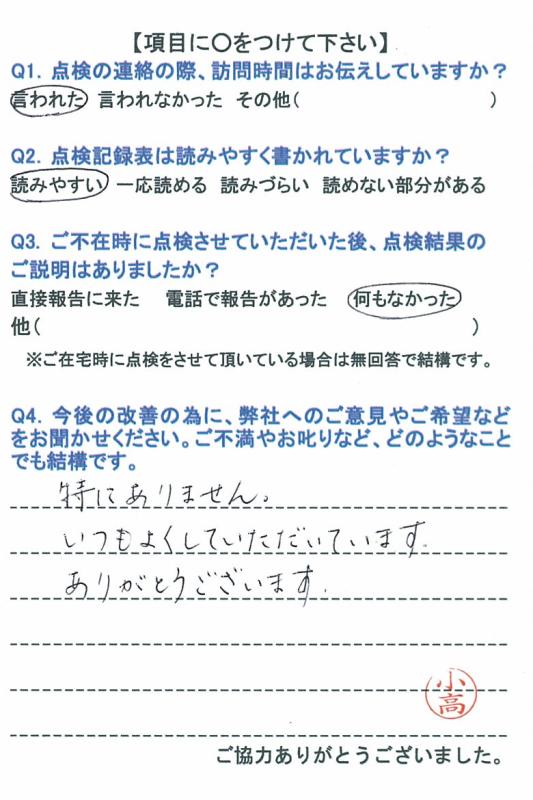 【項目に〇をつけて下さい】
Q1. 点検の連絡の際、訪問時間はお伝えしていますか？
言われた 言われなかった その他( )
Q2. 点検記録表は読みやすく書かれていますか？
読みやすい 一応読める 読みづらい 読めない部分がある
Q3. ご不在時に点検させていただいた後、点検結果の
ご説明はありましたか？
直接報告に来た 電話で報告があった 何もなかった
他( )
※ご在宅時に点検をさせて頂いている場合は無回答で結構です。
Q4. 今後の改善の為に、弊社へのご意見やご希望など
をお聞かせください。ご不満やお叱りなど、どのようなこと
でも結構です。
特にありません。
いつもよくしていただいています.
ありがとうございます.
小
高
ご協力ありがとうございました。